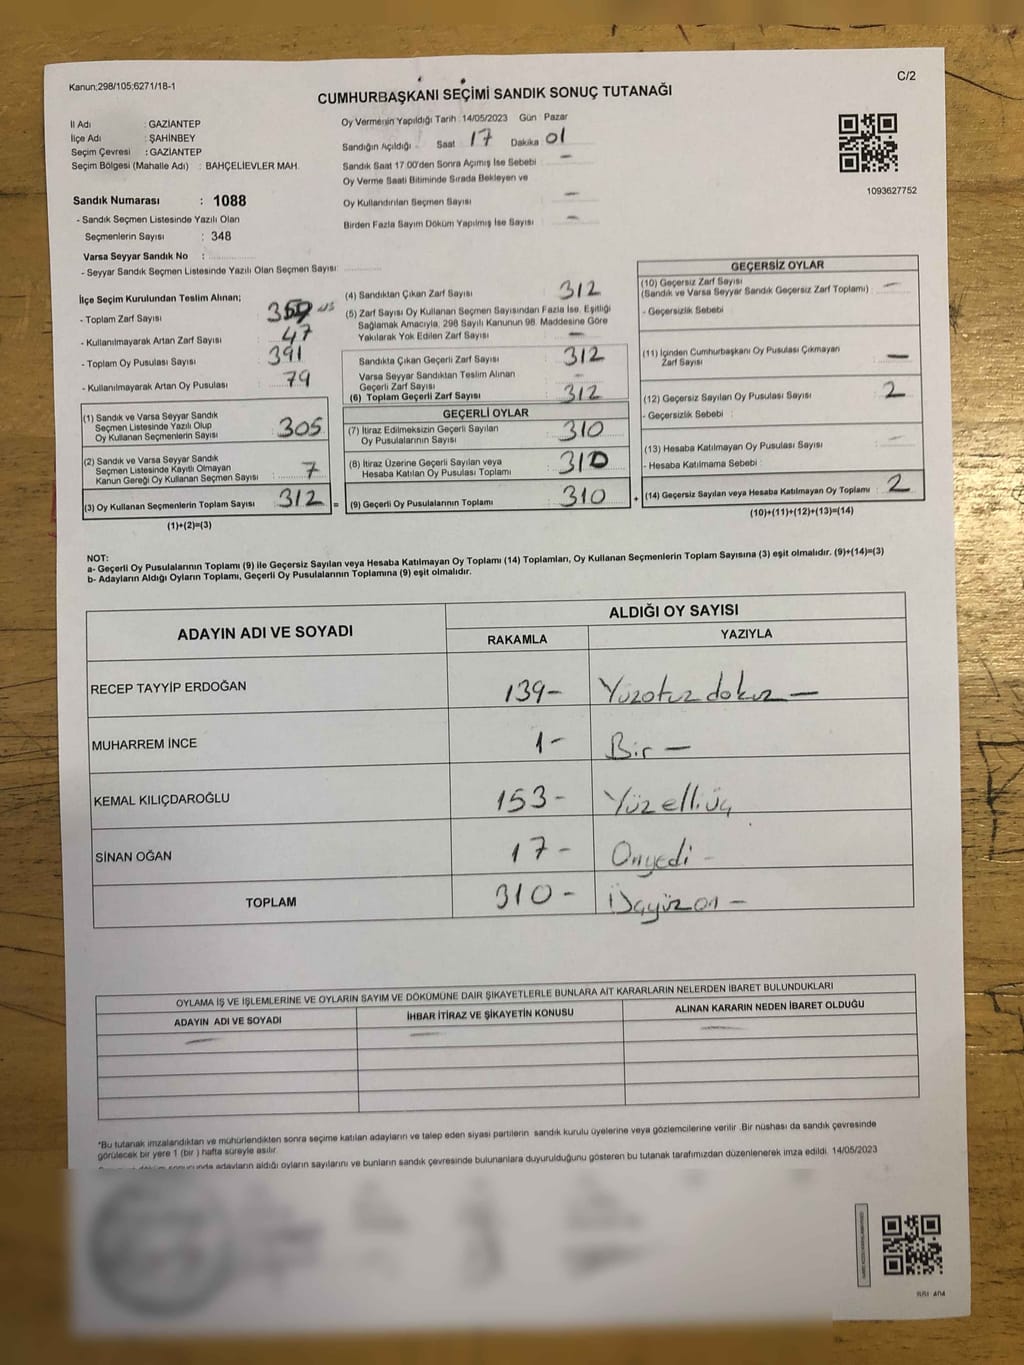 Kanun;298/105;6271/18-1
C/2
CUMHURBAŞKANI SEÇİMİ SANDIK SONUÇ TUTANAĞI
İl Adı : GAZİANTEP
İlçe Adı : ŞAHİNBEY
Seçim Çevresi : GAZİANTEP
Seçim Bölgesi (Mahalle Adı) : BAHÇELİEVLER MAH.
Sandık Numarası : 1088
- Sandık Seçmen Listesinde Yazılı Olan
Seçmenlerin Sayısı : 348
Varsa Seyyar Sandık No :
- Seyyar Sandık Seçmen Listesinde Yazılı Olan Seçmen Sayısı:
Oy Vermenin Yapıldığı Tarih :14/05/2023 Gün Pazar
Sandığın Açıldığı Saat 17 Dakika 01
Sandık Saat 17.00'den Sonra Açımış İse Sebebi —
Oy Verme Saati Bitiminde Sırada Bekleyen ve
Oy Kullandırılan Seçmen Sayısı —
Birden Fazla Sayım Döküm Yapılmış İse Sayısı —
1093627752
İlçe Seçim Kurulundan Teslim Alınan;
- Toplam Zarf Sayısı
- Kullanılmayarak Artan Zarf Sayısı 47
- Toplam Oy Pusulası Sayısı 391
- Kullanılmayarak Artan Oy Pusulası 79
(1) Sandık ve Varsa Seyyar Sandık
Seçmen Listesinde Yazılı Olup
Oy Kullanan Seçmenlerin Sayısı : 305
(2) Sandık ve Varsa Seyyar Sandık
Seçmen Listesinde Kayıtlı Olmayan
Kanun Gereği Oy Kullanan Seçmen Sayısı : 7
(3) Oy Kullanan Seçmenlerin Toplam Sayısı : 312 =
(1)+(2)=(3)
(4) Sandıktan Çıkan Zarf Sayısı 312
(5) Zarf Sayısı Oy Kullanan Seçmen Sayısından Fazla İse, Eşitliği
Sağlamak Amacıyla, 298 Sayılı Kanunun 98. Maddesine Göre
Yakılarak Yok Edilen Zarf Sayısı —
Sandıkta Çıkan Geçerli Zarf Sayısı : 312
Varsa Seyyar Sandıktan Teslim Alınan
Geçerli Zarf Sayısı : —
(6) Toplam Geçerli Zarf Sayısı : 312
GEÇERLİ OYLAR
(7) İtiraz Edilmeksizin Geçerli Sayılan
Oy Pusulalarının Sayısı : 310
(8) İtiraz Üzerine Geçerli Sayılan veya
Hesaba Katılan Oy Pusulası Toplamı : 310
(9) Geçerli Oy Pusulalarının Toplamı : 310 +
GEÇERSİZ OYLAR
(10) Geçersiz Zarf Sayısı : —
(Sandık ve Varsa Seyyar Sandık Geçersiz Zarf Toplamı)
- Geçersizlik Sebebi
(11) İçinden Cumhurbaşkanı Oy Pusulası Çıkmayan
Zarf Sayısı —
(12) Geçersiz Sayılan Oy Pusulası Sayısı : 2
- Geçersizlik Sebebi :
(13) Hesaba Katılmayan Oy Pusulası Sayısı : —
- Hesaba Katılmama Sebebi :
(14) Geçersiz Sayılan veya Hesaba Katılmayan Oy Toplamı : 2
(10)+(11)+(12)+(13)=(14)
NOT:
a- Geçerli Oy Pusulalarının Toplamı (9) ile Geçersiz Sayılan veya Hesaba Katılmayan Oy Toplamı (14) Toplamları, Oy Kullanan Seçmenlerin Toplam Sayısına (3) eşit olmalıdır. (9)+(14)=(3)
b- Adayların Aldığı Oyların Toplamı, Geçerli Oy Pusulalarının Toplamına (9) eşit olmalıdır.
ADAYIN ADI VE SOYADI
ALDIĞI OY SAYISI
RAKAMLA YAZIYLA
RECEP TAYYİP ERDOĞAN 139- Yüzotuzdokuz —
MUHARREM İNCE 1- Bir —
KEMAL KILIÇDAROĞLU 153- Yüzelliüç
SİNAN OĞAN 17- Onyedi -
TOPLAM 310- Üçyüzon -
OYLAMA İŞ VE İŞLEMLERİNE VE OYLARIN SAYIM VE DÖKÜMÜNE DAİR ŞİKAYETLERLE BUNLARA AİT KARARLARIN NELERDEN İBARET BULUNDUKLARI
ADAYIN ADI VE SOYADI İHBAR İTİRAZ VE ŞİKAYETİN KONUSU ALINAN KARARIN NEDEN İBARET OLDUĞU
— — —
*Bu tutanak imzalandıktan ve mühürlendikten sonra seçime katılan adayların ve talep eden siyasi partilerin sandık kurulu üyelerine veya gözlemcilerine verilir .Bir nüshası da sandık çevresinde
görülecek bir yere 1 (bir ) hafta süreyle asılır.
adayların aldığı oyların sayılarını ve bunların sandık çevresinde bulunanlara duyurulduğunu gösteren bu tutanak tarafımızdan düzenlenerek imza edildi. 14/05/2023